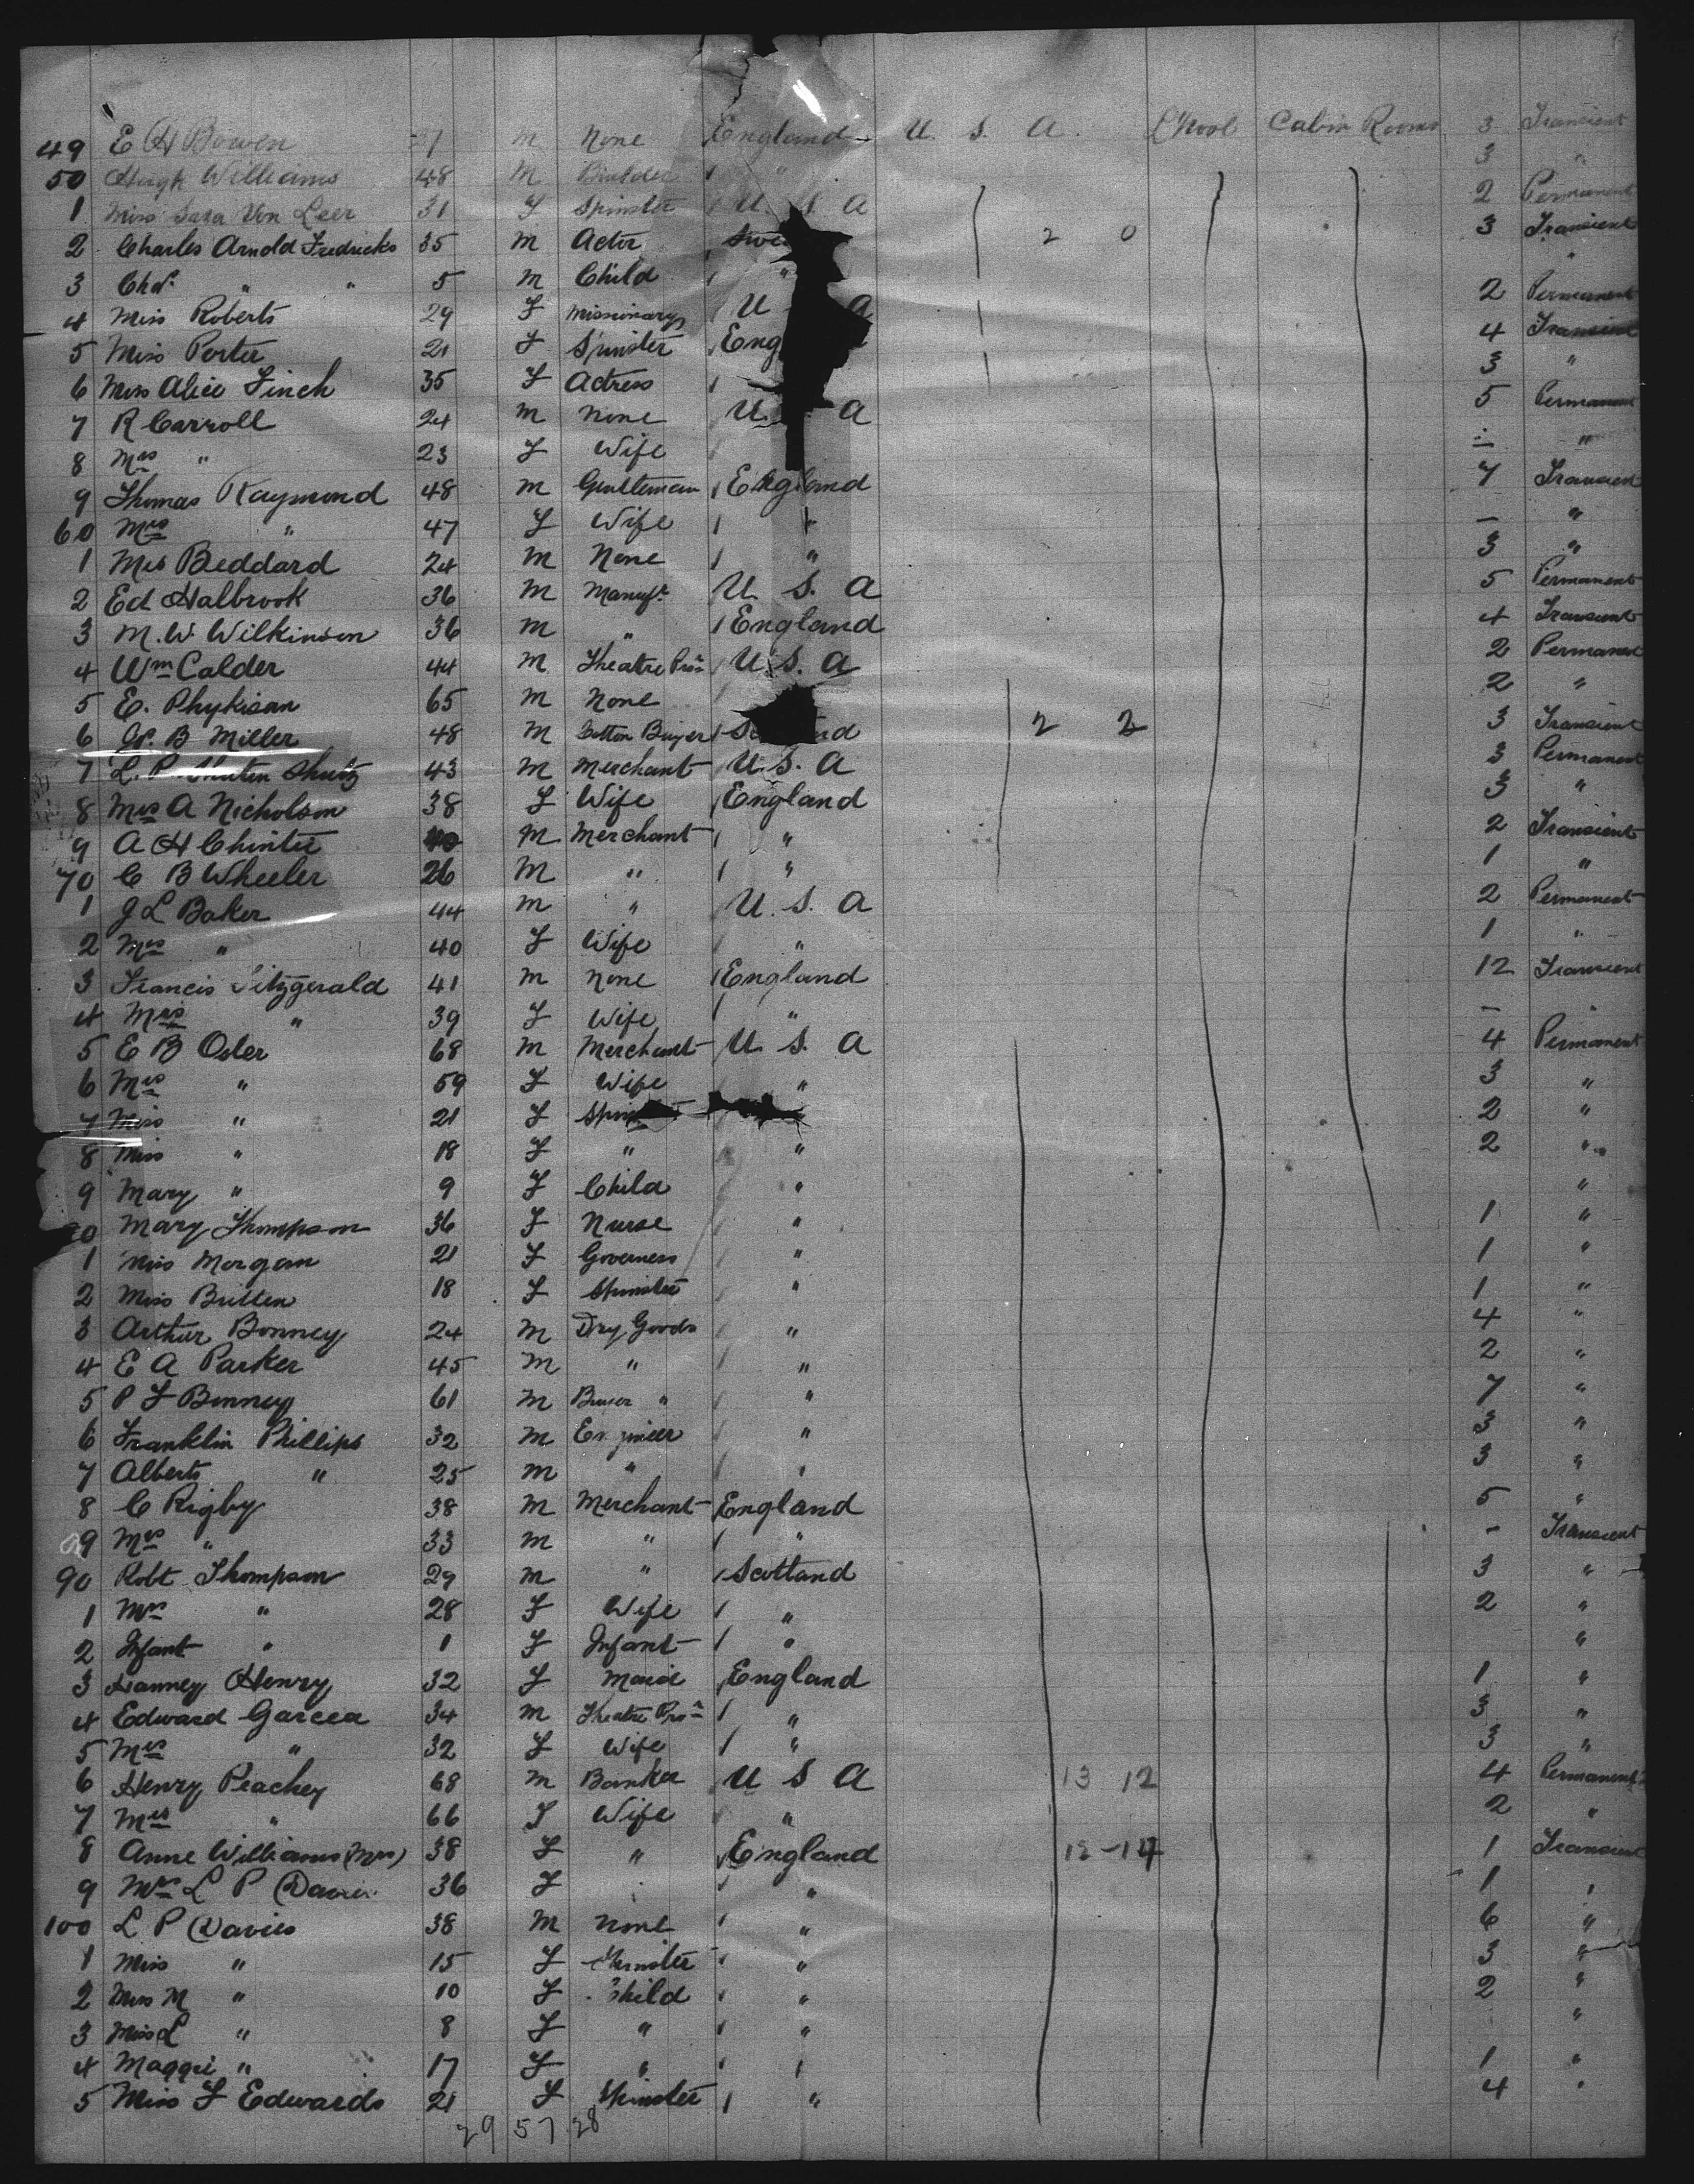 49 E H Bowen m None England U. S. A. L'Pool Cabin Rooms 3 Transient
50 Hugh Williams 48 M Builder " 3 "
1 Miss Sara Von Leer 31 F Spinster U. S. A 2 Permanent
2 Charles Arnold Fredricks 35 m Actor 2 0 3 Transient
3 Chas. " " 5 m Child " "
4 Miss Roberts 29 F Missionary U A 2 Permanent
5 Miss Porter 21 F Spinster Eng 4 Transient
6 Miss Alice Finch 35 F Actress 3 "
7 R Carroll 24 m None U A 5 Permanent
8 Mrs " 23 F Wife "
9 Thomas Raymond 48 m Gentleman England 7 Transient
60 Mrs " 47 F Wife " - "
1 Mrs Beddard 24 m None " 3 "
2 Ed Halbrook 36 m Manufr. U. S. A 5 Permanent
3 M. W. Wilkinson 36 m " England 4 Transient
4 Wm Calder 44 m Theatre Pro U. S. A 2 Permanent
5 E. Phykisan 65 m None 2 "
6 B Miller 48 m Cotton Buyer S nd 2 2 3 Transient
7 L. P. Shultz 43 m Merchant U. S. A 3 Permanent
8 Mrs A Nicholson 38 F Wife England 3 "
9 A H Chinter 40 m Merchant " 2 Transient
70 C B Wheeler 26 m " " 1 "
1 J L Baker 44 m " U. S. A 2 Permanent
2 Mrs " 40 F Wife " 1 "
3 Francis Fitzgerald 41 m None England 12 Transient
4 Mrs " 39 F Wife " - "
5 E B Osler 68 m Merchant U. S. A 4 Permanent
6 Mrs " 59 F Wife " 3 "
7 Miss " 21 F Spin 2 "
8 Miss " 18 F " " 2 "
9 Mary " 9 F Child " "
0 Mary Thompson 36 F Nurse " 1 "
1 Miss Morgan 21 F Governess " 1 "
2 Miss Britten 18 F Spinster " 1 "
3 Arthur Bonney 24 m Dry Goods " 4 "
4 E A Parker 45 m " " 2 "
5 P F Binney 61 m " " 7 "
6 Franklin Phillips 32 m Engineer " 3 "
7 Alberts " 25 m " " 3 "
8 C Rigby 38 m Merchant England 5 "
9 Mrs " 33 m " " - Transient
90 Robt Thompson 29 m " Scotland 3 "
1 Mrs " 28 F Wife " 2 "
2 Infant " 1 F Infant " "
3 Hanney Henry 32 F Maid England 1 "
4 Edward Garcia 34 m Theatre Pro " 3 "
5 Mrs " 32 F Wife " 3 "
6 Henry Peachey 68 m Banker U S A 13 12 4 Permanent
7 Mrs " 66 F Wife " 2 "
8 Anne Williams (Mrs) 38 F " England 12-14 1 Transient
9 Mrs L P Davies 36 F " " 1 "
100 L P Davies 38 m None " 6 "
1 Miss " 15 F Spinster " 3 "
2 Miss M " 10 F Child " 2 "
3 Miss L " 8 F " " "
4 Maggie " 17 F " " 1 "
5 Miss F Edwards 21 F Spinster " 4 "
29 57 28